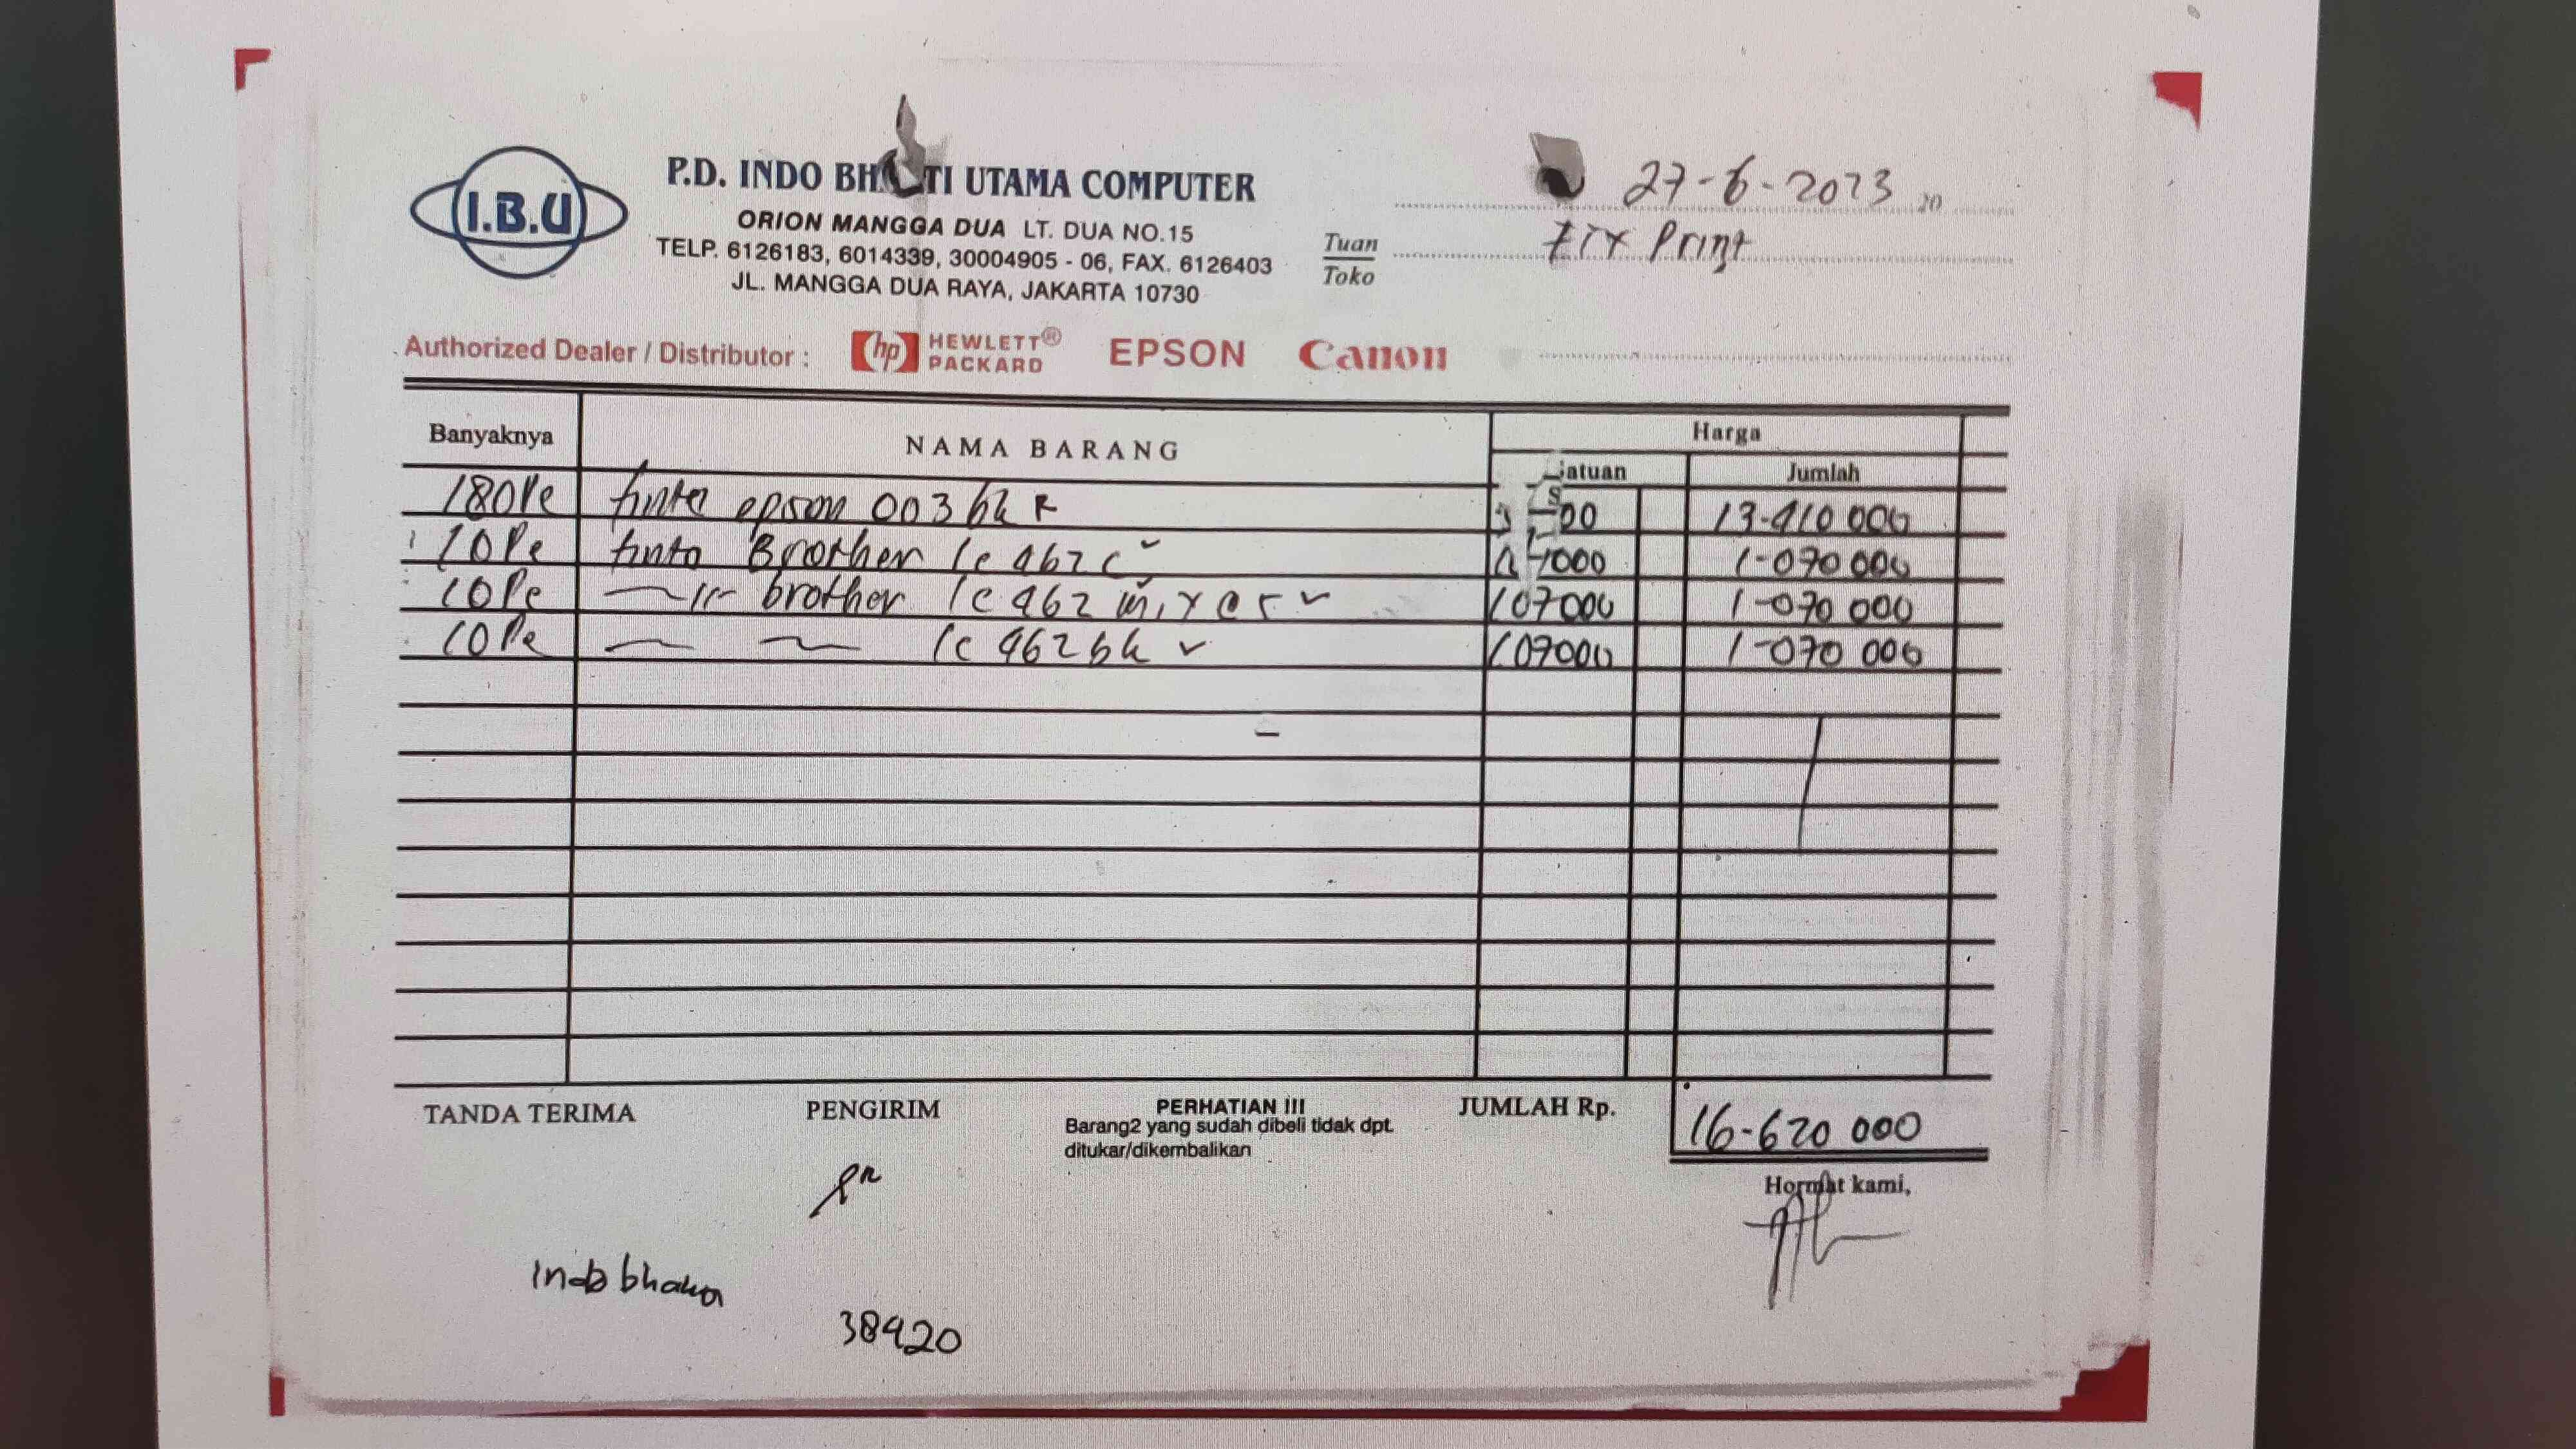 I.B.U
P.D. INDO BHAKTI UTAMA COMPUTER
ORION MANGGA DUA LT. DUA NO.15
TELP. 6126183, 6014339, 30004905 - 06, FAX. 6126403
JL. MANGGA DUA RAYA, JAKARTA 10730
27-6-2023 20
Tuan
Toko
Fix Print
Authorized Dealer / Distributor : hp HEWLETT® PACKARD EPSON Canon
Banyaknya NAMA BARANG Harga
Satuan Jumlah
180 Pc tinta epson 003 bk 13-410 000
10 Pc tinta Brother lc 462 c 1-070 000
10 Pc brother lc 462 107000 1-070 000
10 Pc lc 462 bk 107000 1-070 000
TANDA TERIMA PENGIRIM PERHATIAN !!! JUMLAH Rp. 16-620 000
Barang2 yang sudah dibeli tidak dpt.
ditukar/dikembalikan
Hormat kami,
38420